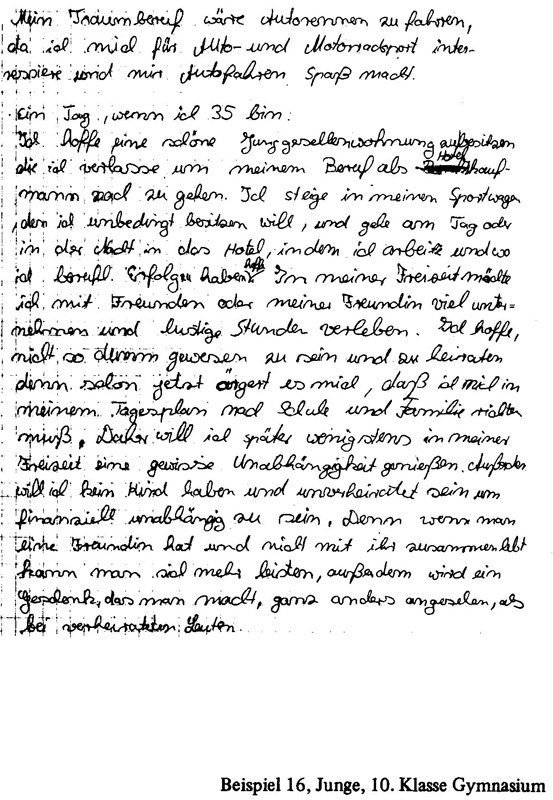 Mein Traumberuf wäre Autorennen zu fahren,
da ich mich für Auto- und Motorradsport inter-
ressiere und mir Autofahren Spaß macht.
Ein Tag, wenn ich 35 bin:
Ich hoffe eine schöne Junggesellenwohnung zu besitzen
die ich verlasse um meinem Beruf als Hotelkauf-
mann nach zu gehen. Ich steige in meinen Sportwagen
, den ich unbedingt besitzen will, und gehe am Tag oder
in der Nacht in das Hotel, in dem ich arbeite und wo
ich berufl. Erfolge haben hoffe. In meiner Freizeit möchte
ich mit Freunden oder meiner Freundin viel unter-
nehmen und lustige Stunden verleben. Ich hoffe,
nicht so dumm gewesen zu sein und zu heiraten
denn schon jetzt ärgert es mich, daß ich mich in
meinem Tagesplan nach Schule und Familie richten
muß. Daher will ich später wenigstens in meiner
Freizeit eine gewisse Unabhängigkeit genießen. Außerdem
will ich kein Kind haben und unverheiratet sein um
finanziell unabhängig zu sein. Denn wenn man
eine Freundin hat und nicht mit ihr zusammenlebt
kann man sich mehr leisten, außerdem wird ein
Geschenk, das man macht, ganz anders angesehen, als
bei verheirateten Leuten.
Beispiel 16, Junge, 10. Klasse Gymnasium